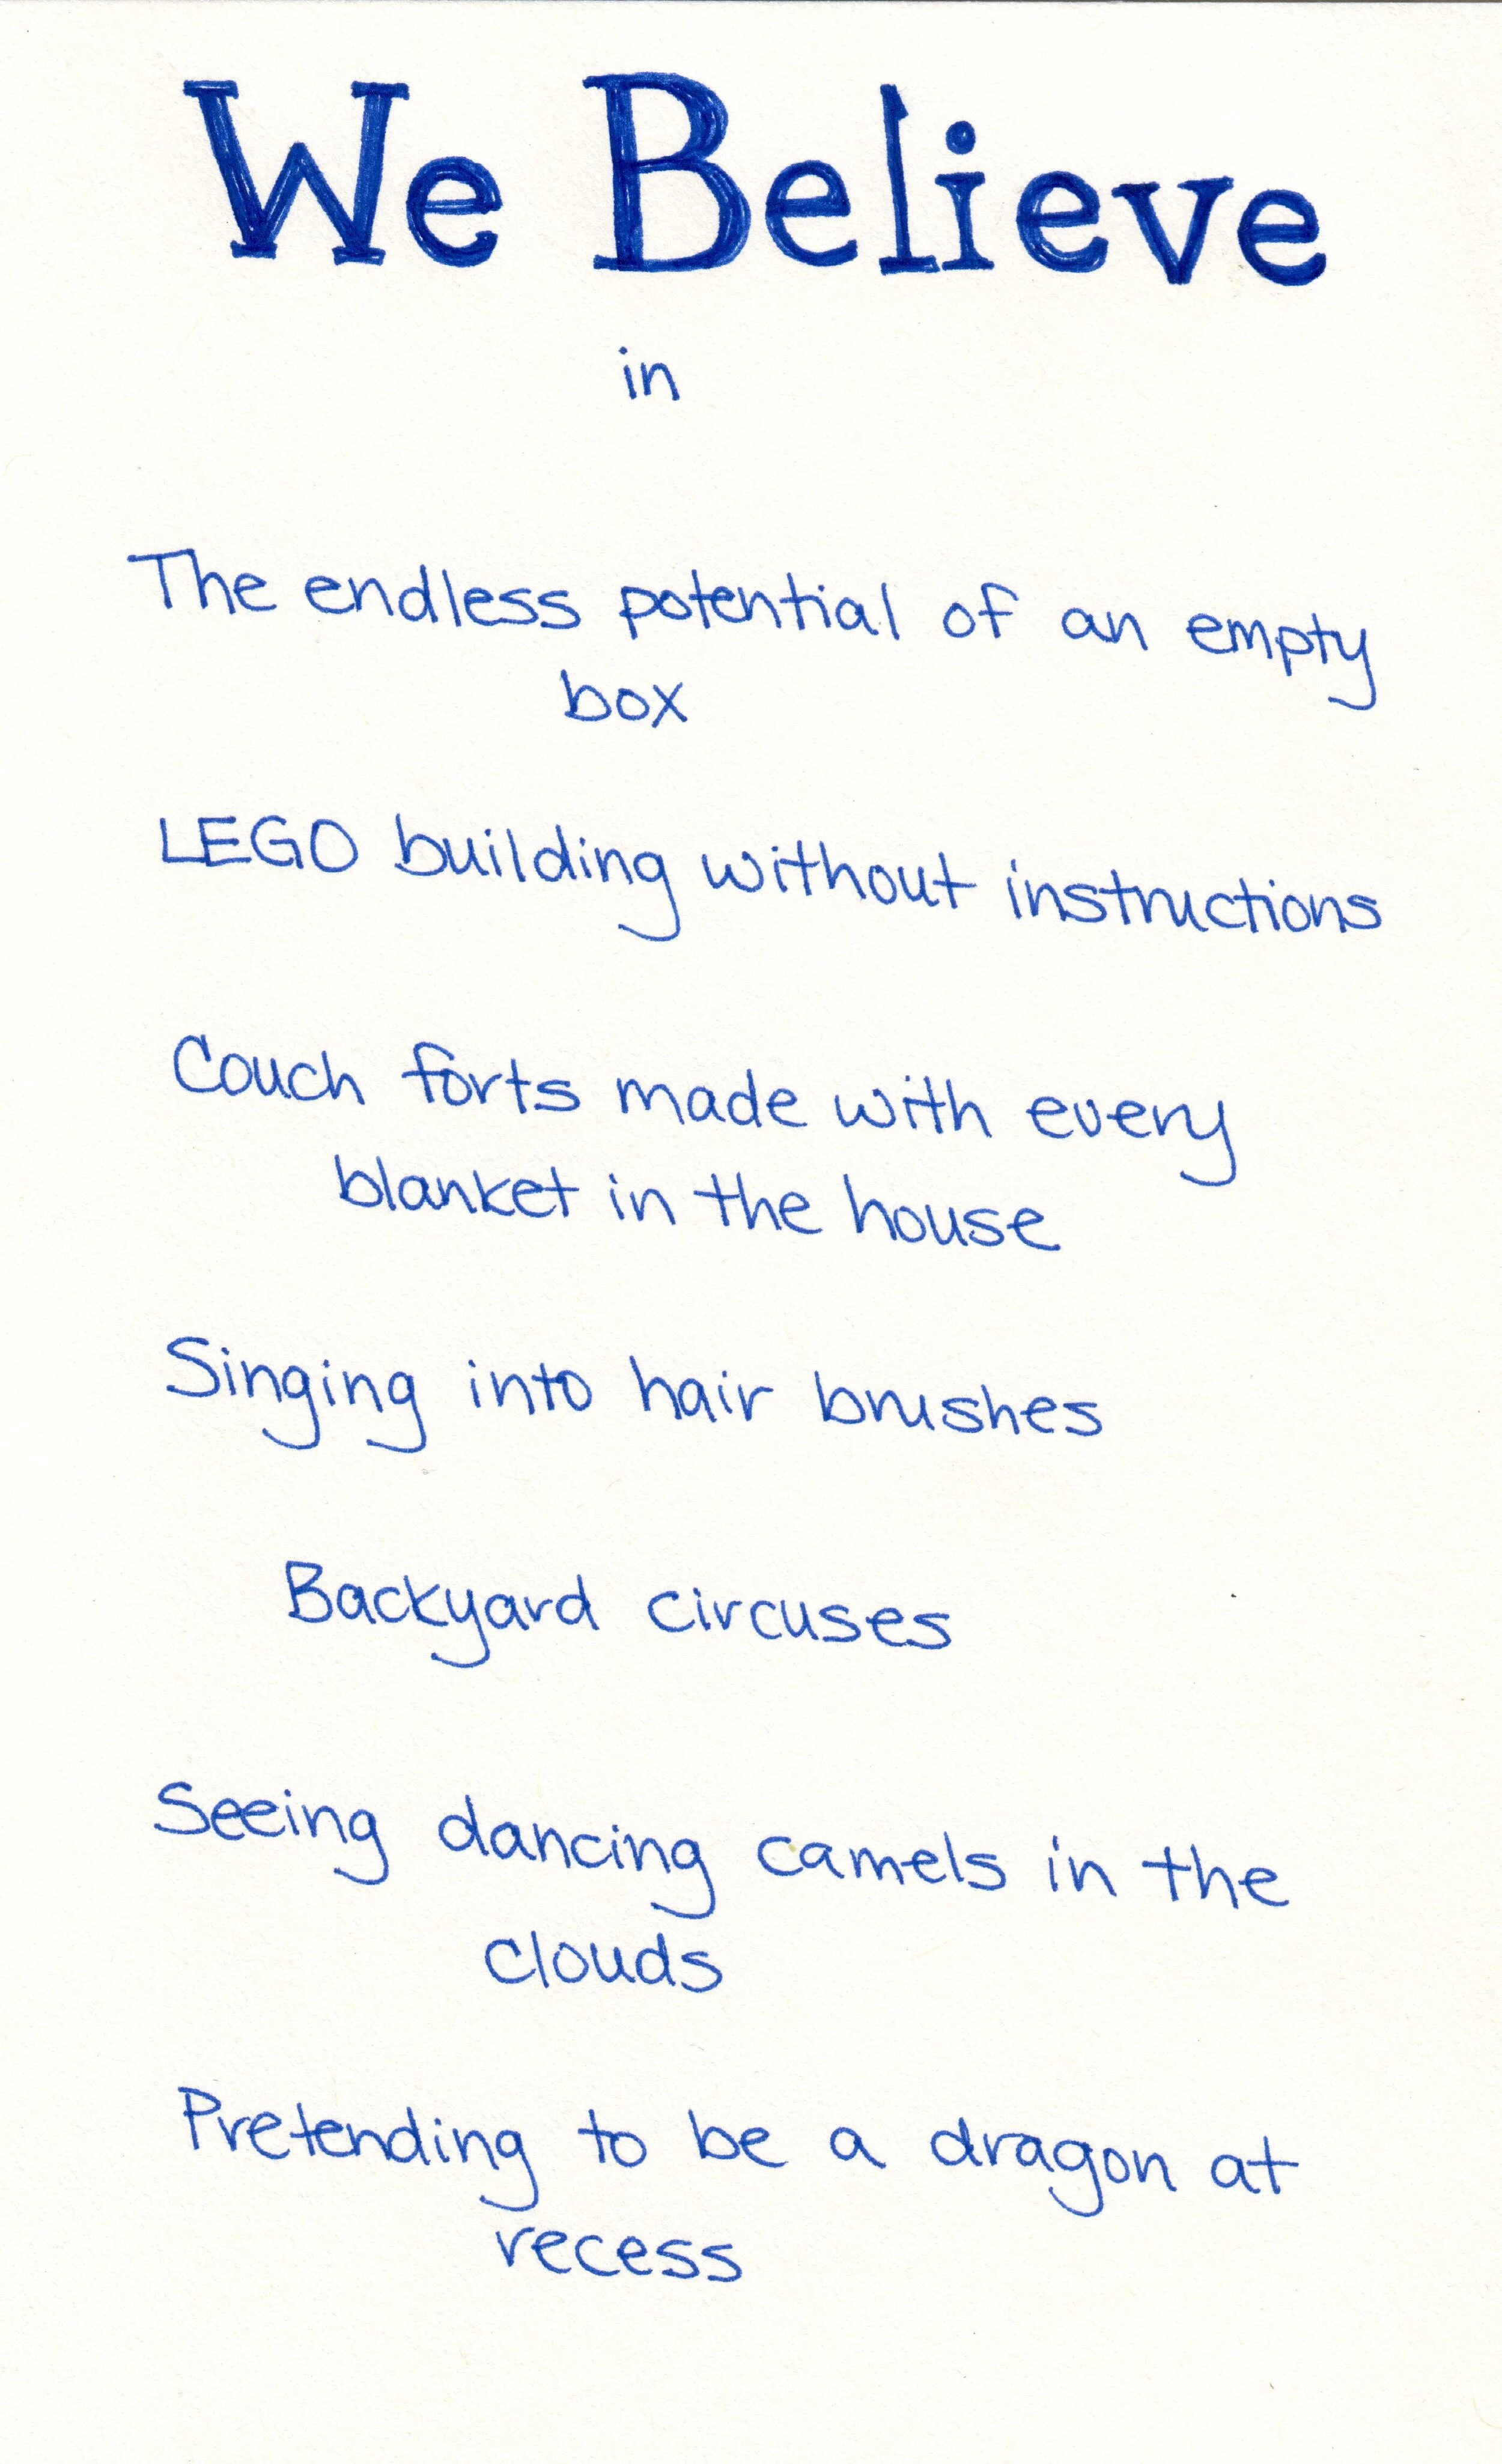 We Believe
in
The endless potential of an empty
box
LEGO building without instructions
Couch forts made with every
blanket in the house
Singing into hair brushes
Backyard circuses
Seeing dancing camels in the
clouds
Pretending to be a dragon at
recess